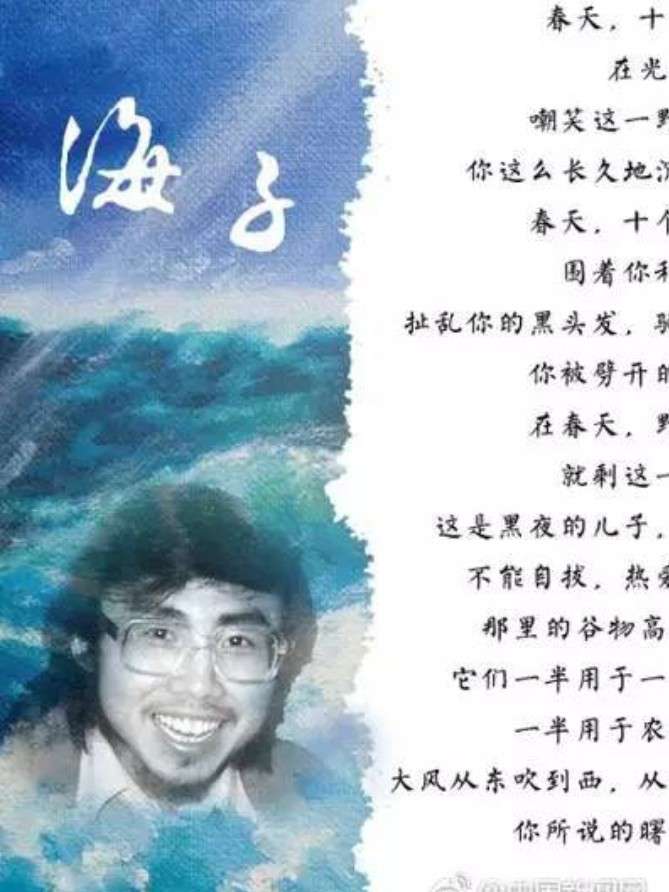 海子
春天,十
在光
嘲笑这一野
你这么长久地沉
春天,十个
围着你和
扯乱你的黑头发,骑
你被劈开的
在春天,野
就剩这一
这是黑夜的儿子,
不能自拔,热爱
那里的谷物高
它们一半用于一
一半用于农
大风从东吹到西,从
你所说的曙